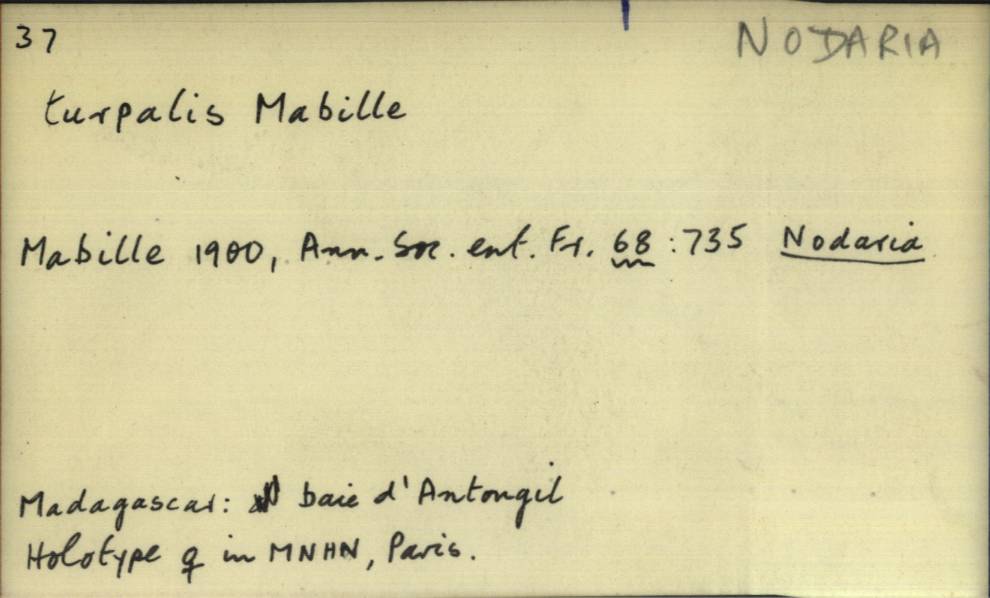 37 NODARIA
turpalis Mabille
Mabille 1900, Ann. Soc. ent. Fr. 68 : 735 Nodaria
Madagascar: baie d'Antongil
Holotype ♀ in MNHN, Paris.